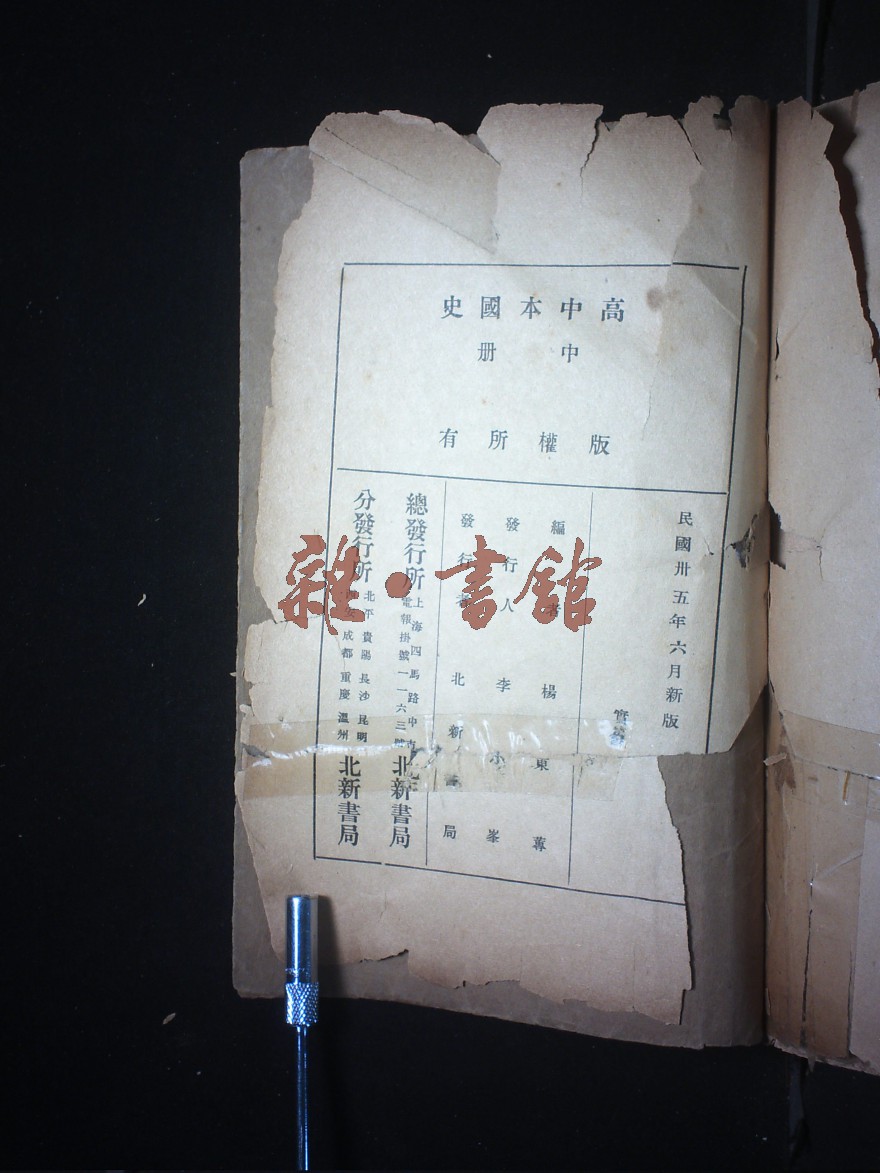 高中本國史
中册
版權所有
民國卅五年六月新版
實
編者 楊東蓴
發行人 李小峯
發行者 北新書局
總發行所 上海四馬路中市 電報掛號一一六三號 北新書局
分發行所 北平 貴陽 長沙 昆明 成都 重慶 溫州 北新書局
雜·書館